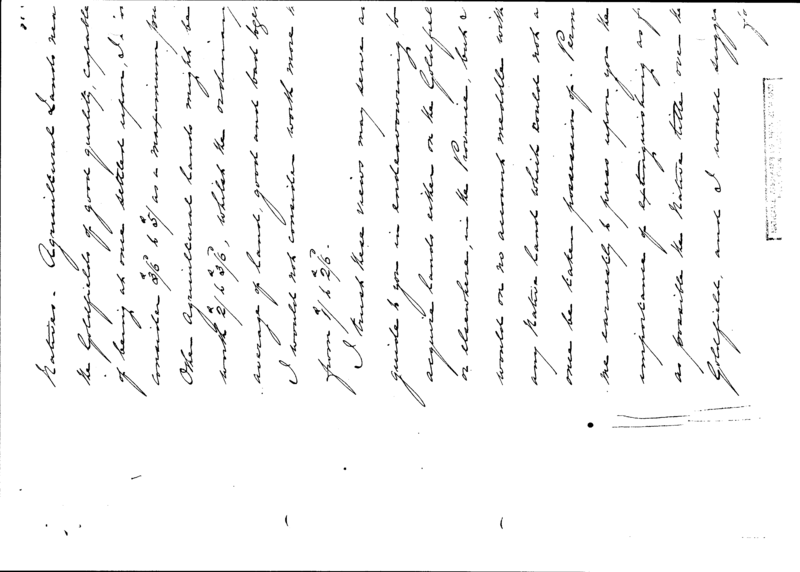 Natives - Agricultural Lands nea
the Goldfields of good quality, capable
of being at once settled upon, I
consider 3/6 to 5/ as a maximum for
Other Agricultural lands might be
worth 2/ to 3/6, whilst the ordinary
average of land, good and bad toge
I would not consider worth more th
from 1/ to 2/6.
I trust these views may serve as
guide to you in endeavouring to
acquire lands either on the Goldfiel
or elsewhere, in the Province, but I
would on no account meddle with
any Native land which could not a
once be taken possession of. Perm
me earnestly to press upon you the
importance of extinguishing as f
as possible the Native title over the
Goldfield, and I would sugge